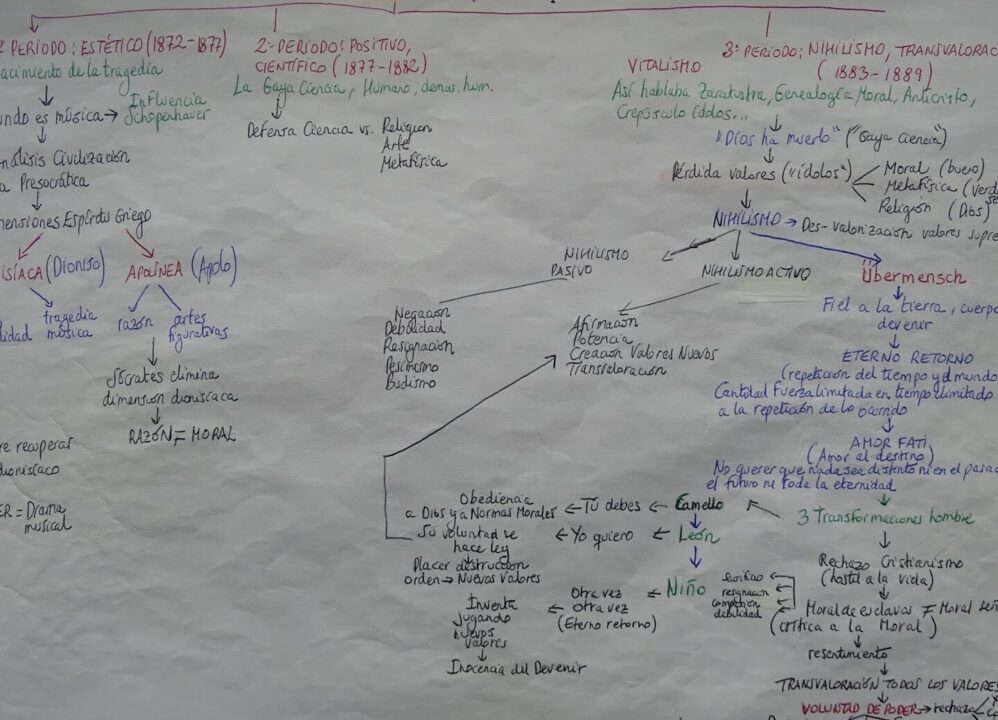 PERÍODO: ESTÉTICO (1872-1877)
acimiento de la tragedia
undo es música → Influencia
Schopenhaver
nálisis Civilización
a Presocrática
mensiones Espíritu Griego
ISÍACA (Dioniso)
APOLÍNEA (Apolo)
lidad
tragedia
música
razón
artes
figurativas
Sócrates elimina
dimensión dionisíaca
RAZÓN ≠ MORAL
re recuperar
dionisíaco
ER = Drama
musical
2º PERÍODO: POSITIVO,
CIENTÍFICO (1877-1882)
La Gaya Ciencia, Humano, demas. hum.
Defensa Ciencia vs. Religión
Arte
Metafísica
VITALISMO
3º PERIODO: NIHILISMO, TRANSVALORAC
(1883-1889)
Así hablaba Zaratustra, Genealogía Moral, Anticristo,
Crepúsculo ídolos...
"Dios ha muerto" ("Gaya Ciencia")
Pérdida valores ("ídolos")
Moral (bueno)
Metafísica (verd
Religión (Dios)
NIHILISMO → Des-valorización valores supre
NIHILISMO
PASIVO
NIHILISMO ACTIVO
Übermensch
Negación
Debilidad
Resignación
Pesimismo
Budismo
Afirmación
Potencia
Creación Valores Nuevos
Transvaloración
Fiel a la tierra, cuerpo
devenir
ETERNO RETORNO
(repetición del tiempo y del mundo
Cantidad fuerza limitada en tiempo ilimitado
a la repetición de lo ocurrido
AMOR FATI
(Amor al destino)
No querer que nada sea distinto ni en el pasad
el futuro ni toda la eternidad
3 Transformaciones hombre
Camello
← Tú debes ←
Obediencia
a Dios y a Normas Morales
León
← Yo quiero ←
Su voluntad se
hace ley
Placer destrucción
orden → Nuevos Valores
Niño
Otra vez
otra vez
(Eterno retorno)
Inventa
jugando
nuevos
valores
Inocencia del Devenir
Rechazo Cristianismo
(hostil a la vida)
resignación
compasión
debilidad
Moral de esclavos ≠ Moral señ
(crítica a la Moral)
resentimiento
TRANSVALORACIÓN TODOS LOS VALORES
VOLUNTAD DE PODER → rechaza